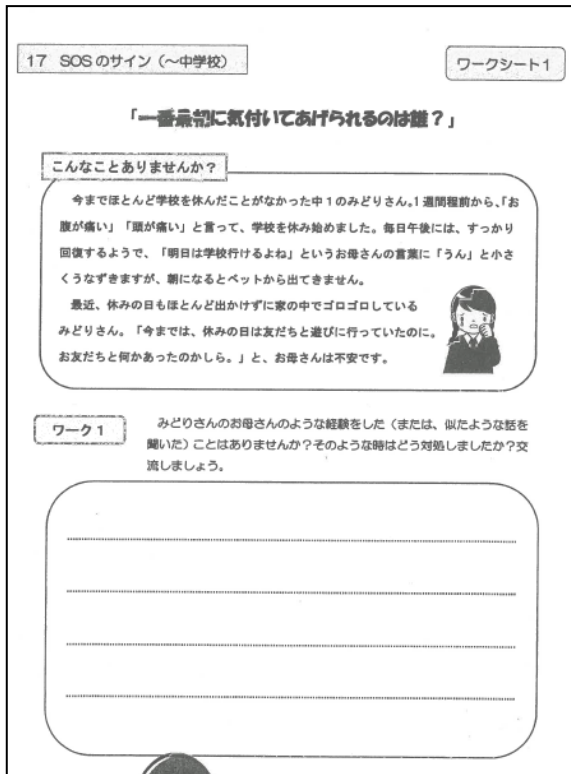 17 SOSのサイン（～中学校）
ワークシート1
「一番最初に気付いてあげられるのは誰？」
こんなことありませんか？
今までほとんど学校を休んだことがなかった中１のみどりさん。1週間程前から、「お
腹が痛い」「頭が痛い」と言って、学校を休み始めました。毎日午後には、すっかり
回復するようで、「明日は学校行けるよね」というお母さんの言葉に「うん」と小さ
くうなずきますが、朝になるとベットから出てきません。
最近、休みの日もほとんど出かけずに家の中でゴロゴロしている
みどりさん。「今までは、休みの日は友だちと遊びに行っていたのに。
お友だちと何かあったのかしら。」と、お母さんは不安です。
ワーク１
みどりさんのお母さんのような経験をした（または、似たような話を
聞いた）ことはありませんか？そのような時はどう対処しましたか？交
流しましょう。